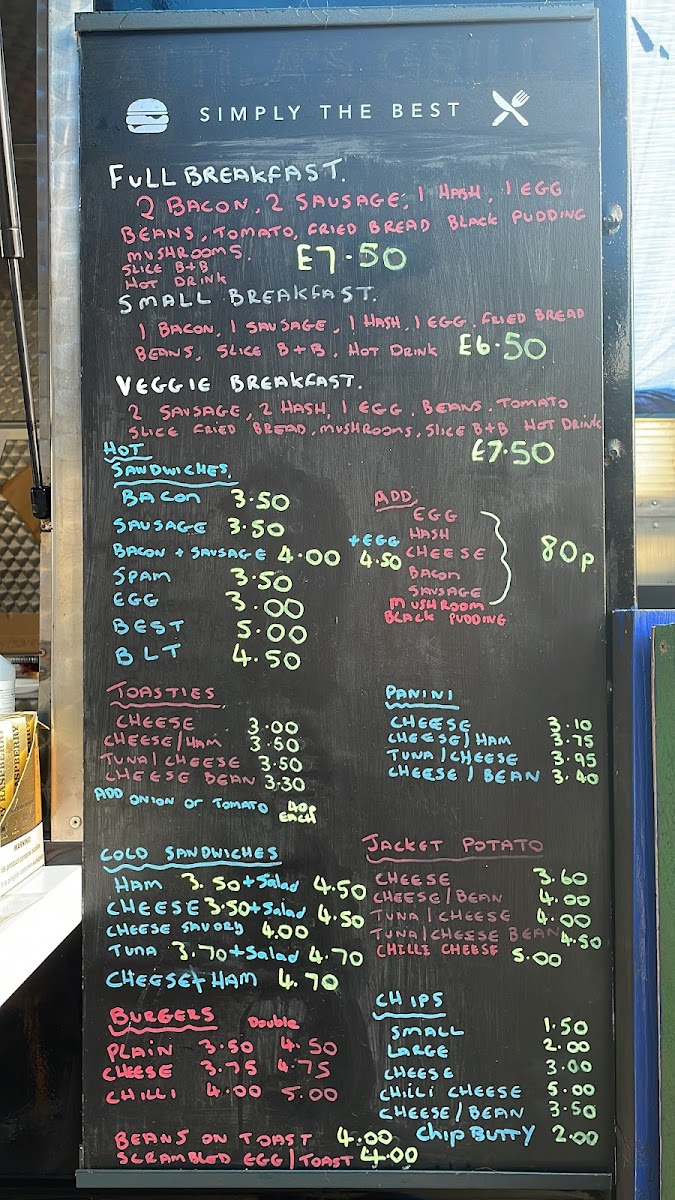 SIMPLY THE BEST
FULL BREAKFAST.
2 BACON, 2 SAUSAGE, 1 HASH, 1 EGG
BEANS, TOMATO, FRIED BREAD BLACK PUDDING
MUSHROOMS.
SLICE B+B
HOT DRINK
£7.50
SMALL BREAKFAST.
1 BACON, 1 SAUSAGE, 1 HASH, 1 EGG. FRIED BREAD
BEANS, SLICE B+B, HOT DRINK £6.50
VEGGIE BREAKFAST.
2 SAUSAGE, 2 HASH, 1 EGG. BEANS. TOMATO
SLICE FRIED BREAD, MUSHROOMS, SLICE B+B HOT DRINK
£7.50
HOT
SANDWICHES.
BACON 3.50
SAUSAGE 3.50
BACON + SAUSAGE 4.00 +EGG 4.50
SPAM 3.50
EGG 3.00
BEST 5.00
BLT 4.50
ADD
EGG
HASH
CHEESE
BACON
SAUSAGE
MUSHROOM
BLACK PUDDING
80p
TOASTIES
CHEESE 3.00
CHEESE/HAM 3.50
TUNA/CHEESE 3.50
CHEESE BEAN 3.30
ADD ONION OR TOMATO 40P EACH
PANINI
CHEESE 3.10
CHEESE/HAM 3.75
TUNA/CHEESE 3.95
CHEESE/BEAN 3.40
COLD SANDWICHES
HAM 3.50 + Salad 4.50
CHEESE 3.50 + Salad 4.50
CHEESE SAVORY 4.00
TUNA 3.70 + Salad 4.70
CHEESE + HAM 4.70
JACKET POTATO
CHEESE 3.60
CHEESE/BEAN 4.00
TUNA/CHEESE 4.00
TUNA/CHEESE BEAN 4.50
CHILLI CHEESE 5.00
BURGERS Double
PLAIN 3.50 4.50
CHEESE 3.75 4.75
CHILLI 4.00 5.00
CHIPS
SMALL 1.50
LARGE 2.00
CHEESE 3.00
CHILLI CHEESE 5.00
CHEESE/BEAN 3.50
Chip BUTTY 2.00
BEANS ON TOAST 4.00
SCRAMBLED EGG/TOAST 4.00
RASPBERRY
WARNING: